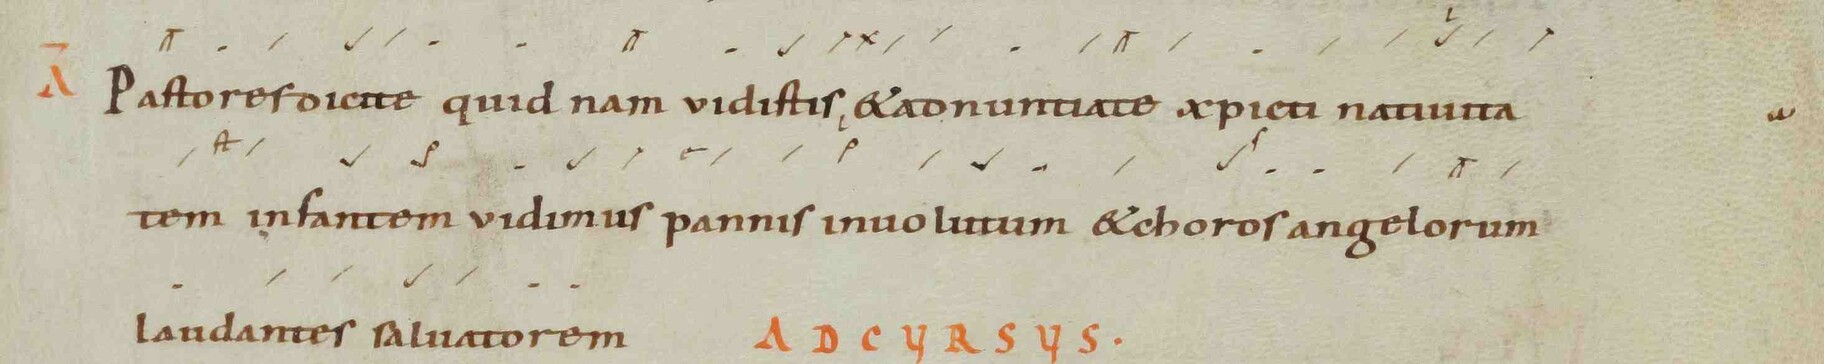 A Pastores dicite quid nam vidistis, & adnuntiate xpicti natiuita
tem infantem vidimus pannis inuolutum & choros angelorum
laudantes saluatorem AD CURSUS.